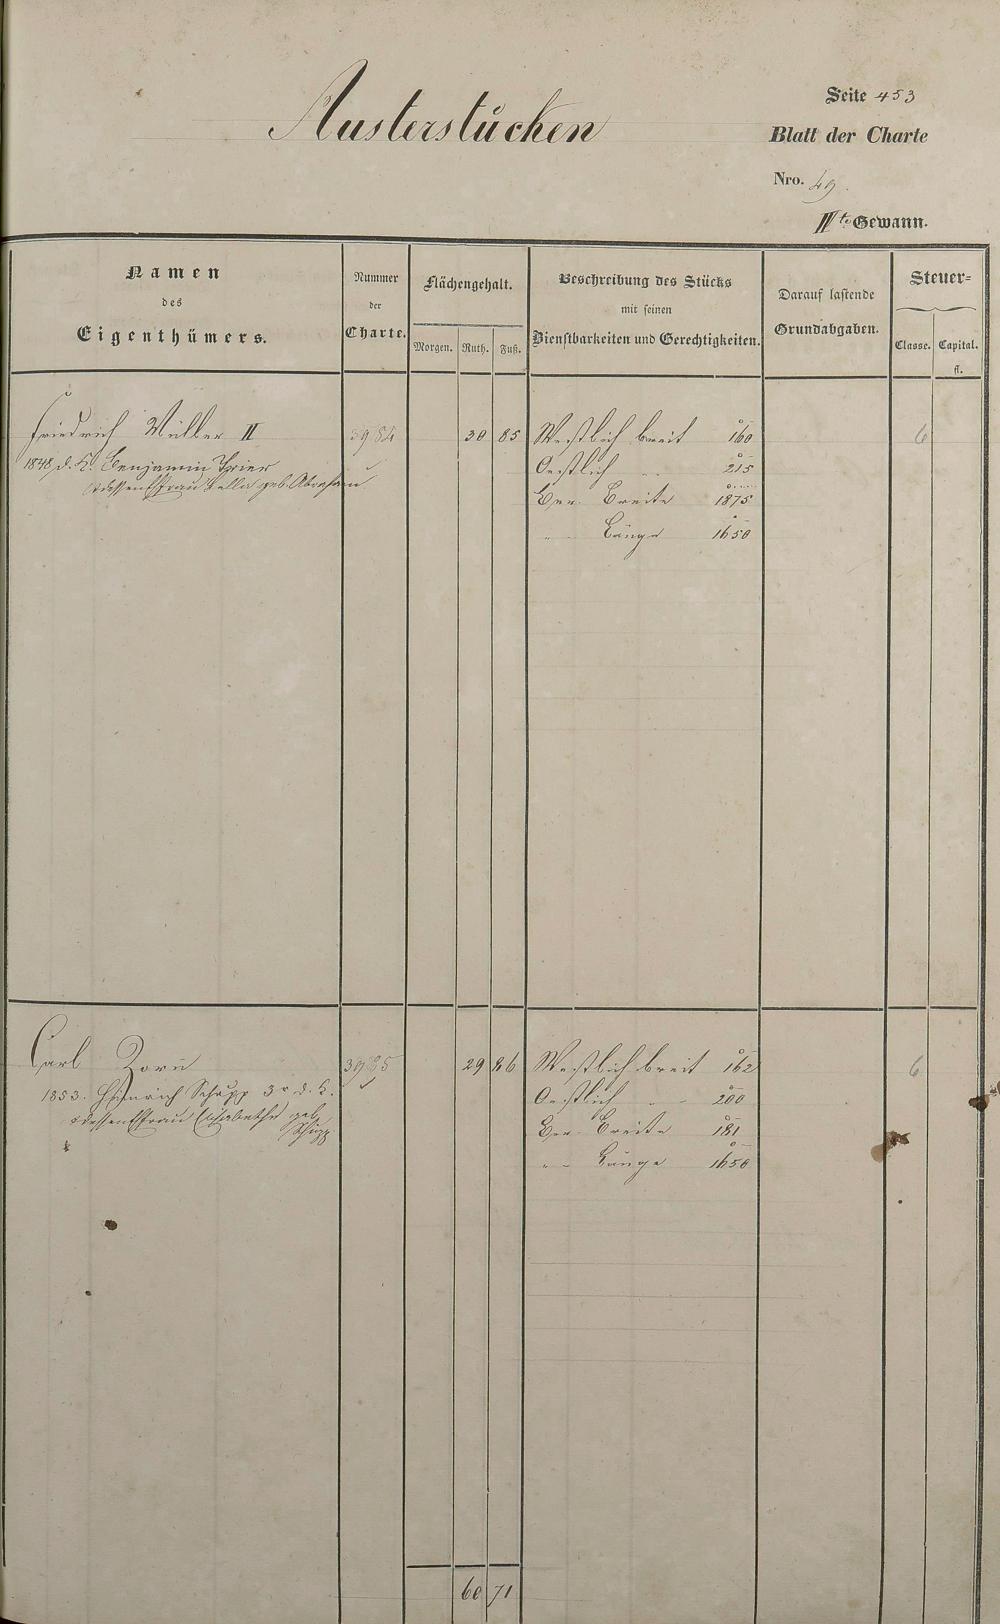 Austerstücken
Seite 453
Blatt der Charte
Nro. 49.
IIte Gewann.
Namen
des
Eigenthümers.
Nummer
der
Charte.
Flächengehalt.
Morgen. Ruth. Fuß.
Beschreibung des Stücks
mit seinen
Dienstbarkeiten und Gerechtigkeiten.
Darauf lastende
Grundabgaben.
Steuer=
Classe. Capital.
fl.
Friedrich Müller II 3984 30 85 Westlich breit 160 6
1848 d. K. Benjamin Trier Oestlich " " 215
& dessen Ehefrau Bella geb. Abraham
Ber. Breite 1875
" Länge 1650
Carl Zorn 3985 29 86 Westlich breit 162 6
1853. Heinrich Schupp 3r d. K. Oestlich " " 200
& dessen Ehefrau Elisabethe geb. Ber. Breite 181
Schupp
" Länge 1650
60 71